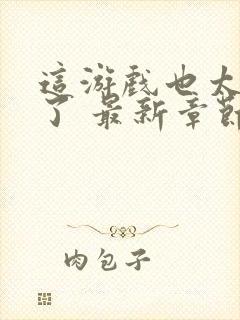 這游戲也太
了 最新章節
肉包子